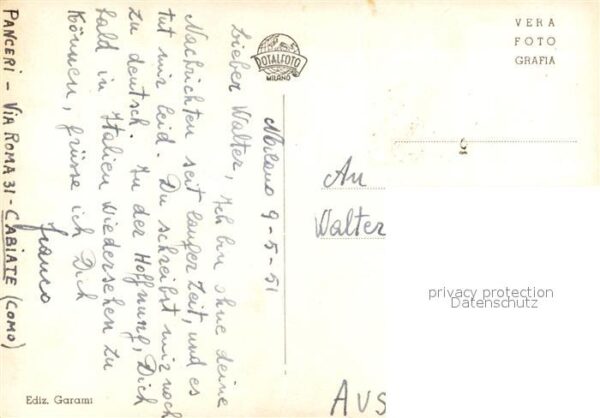 Milano 9-5-51
Lieber Walter, Ich bin ohne deine
Nachrichten seit langer Zeit, und es
tut mir leid. Du schreibst mir noch
zu deutsch. In der Hoffnung, Dich
bald in Italien wiedersehen zu
können, grüsse ich Dich
Franco
PANCERI - VIA ROMA 31 - CABIATE (COMO)
DOTALFOTO
MILANO
VERA
FOTO
GRAFIA
An
Walter
privacy protection
Datenschutz
AUS
Ediz. Garami